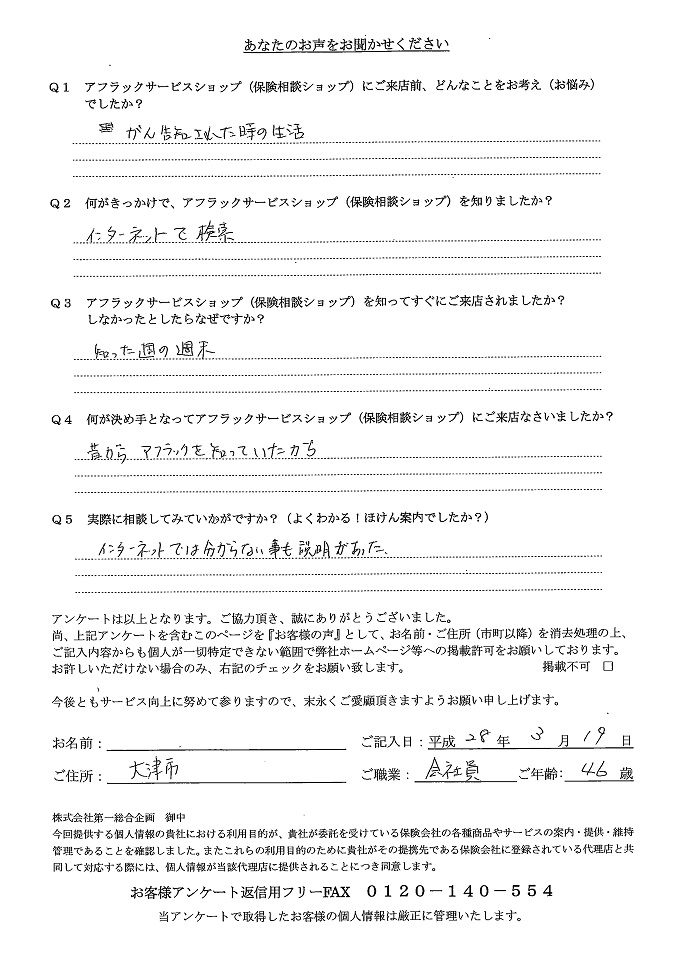 あなたのお声をお聞かせください
Q1 アフラックサービスショップ（保険相談ショップ）にご来店前、どんなことをお考え（お悩み）
でしたか？
がん告知された時の生活
Q2 何がきっかけで、アフラックサービスショップ（保険相談ショップ）を知りましたか？
インターネットで検索
Q3 アフラックサービスショップ（保険相談ショップ）を知ってすぐにご来店されましたか？
しなかったとしたらなぜですか？
知った週の週末
Q4 何が決め手となってアフラックサービスショップ（保険相談ショップ）にご来店なさいましたか？
昔から アフラックを知っていたから
Q5 実際に相談してみていかがですか？（よくわかる！ほけん案内でしたか？）
インターネットでは分からない事も説明があった。
アンケートは以上となります。ご協力頂き、誠にありがとうございました。
尚、上記アンケートを含むこのページを『お客様の声』として、お名前・ご住所（市町以降）を消去処理の上、
ご記入内容からも個人が一切特定できない範囲で弊社ホームページ等への掲載許可をお願いしております。
お許しいただけない場合のみ、右記のチェックをお願い致します。 掲載不可 □
今後ともサービス向上に努めて参りますので、末永くご愛顧頂きますようお願い申し上げます。
お名前： ご記入日：平成 28 年 3 月 19 日
ご住所： 大津市 ご職業： 会社員 ご年齢： 46 歳
株式会社第一総合企画 御中
今回提供する個人情報の貴社における利用目的が、貴社が委託を受けている保険会社の各種商品やサービスの案内・提供・維持
管理であることを確認しました。またこれらの利用目的のために貴社がその提携先である保険会社に登録されている代理店と共
同して対応する際には、個人情報が当該代理店に提供されることにつき同意します。
お客様アンケート返信用フリーFAX 0120－140－554
当アンケートで取得したお客様の個人情報は厳正に管理いたします。